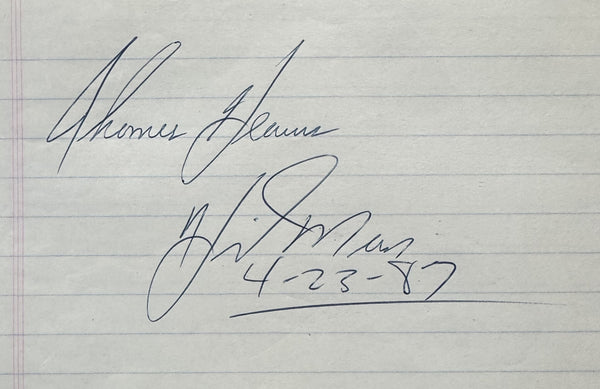 Thomas Hearns
Hit Man
4-23-87